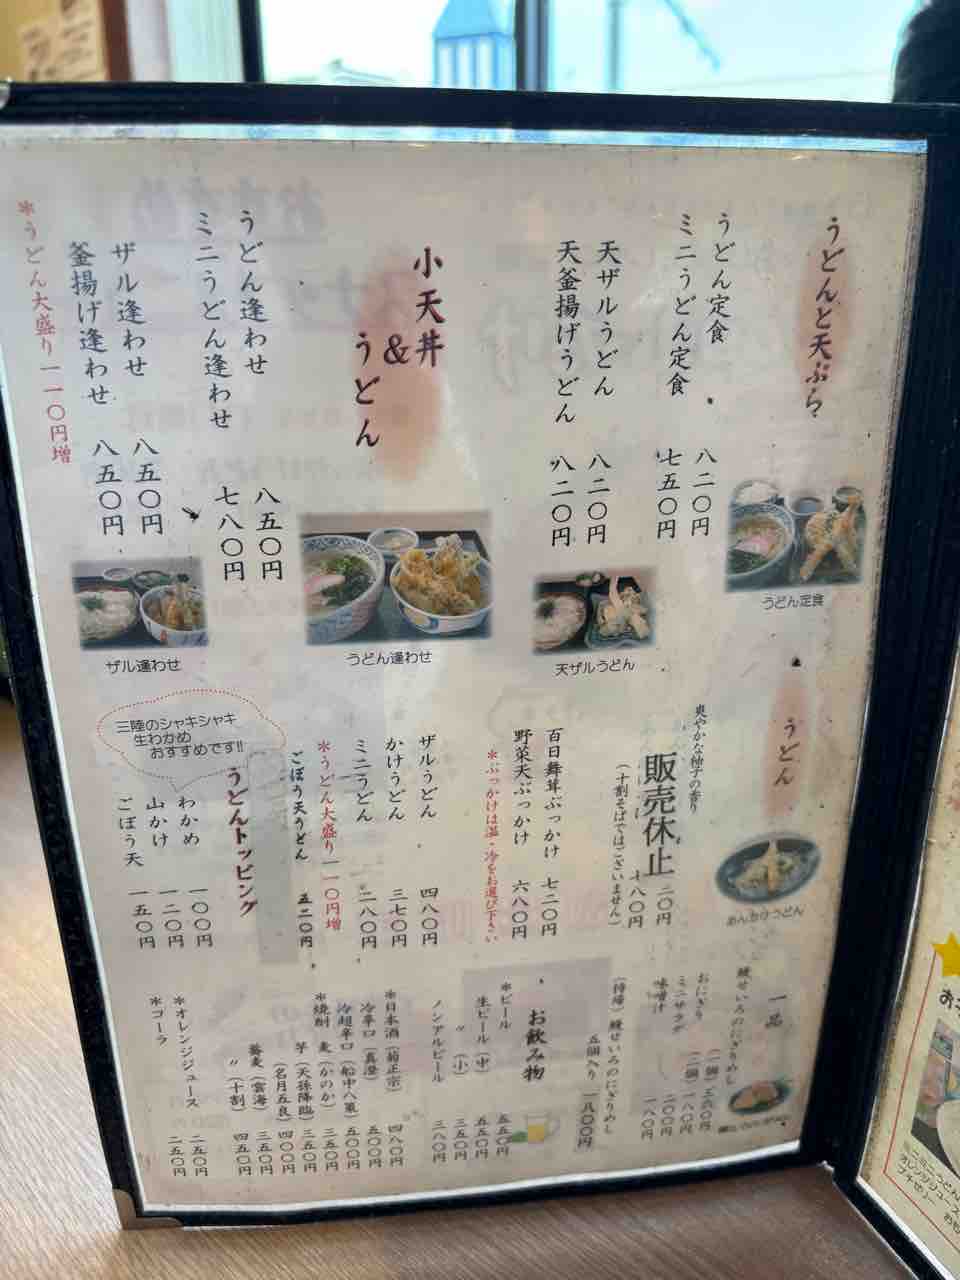 うどんと天ぷら
うどん定食 八二〇円
ミニうどん定食 七五〇円
天ザルうどん 八二〇円
天釜揚げうどん 八二〇円
うどん定食
天ザルうどん
小天丼
&
うどん
うどん逢わせ 八五〇円
ミニうどん逢わせ 七八〇円
ザル逢わせ 八五〇円
釜揚げ逢わせ 八五〇円
*うどん大盛り一一〇円増
うどん逢わせ
ザル逢わせ
うどん
あんかけうどん
爽やかな柚子の香り
販売休止
二〇円
七八〇円
(十割そばではございません)
百日舞茸ぶっかけ 七二〇円
野菜天ぶっかけ 六八〇円
*ぶっかけは温・冷をお選び下さい
ザルうどん 四八〇円
かけうどん 三七〇円
ミニうどん 二八〇円
*うどん大盛り一一〇円増
ごぼう天うどん 五二〇円
三陸のシャキシャキ
生わかめ
おすすめです!!
うどんトッピング
わかめ 一〇〇円
山かけ 一二〇円
ごぼう天 一五〇円
一品
鰻せいろのにぎりめし
(一個) 三六〇円
おにぎり (二個) 一八〇円
ミニサラダ 二〇〇円
味噌汁 一八〇円
(特鰻)鰻せいろのにぎりめし
五個入り 一八〇〇円
お飲み物
*ビール 五五〇円
生ビール(中) 五五〇円
〃 (小) 三五〇円
ノンアルビール 三八〇円
*日本酒(菊正宗) 四八〇円
冷辛口(真澄) 五〇〇円
冷超辛口(船中八策) 五〇〇円
*焼酎 麦(かのか) 三五〇円
芋(天孫降臨) 三五〇円
(名月五良) 四〇〇円
蕎麦(雲海) 三五〇円
〃(十割) 四五〇円
*オレンジジュース 二五〇円
*コーラ 二五〇円
ミニミニうどん
オレンジジュース
プチゼリー